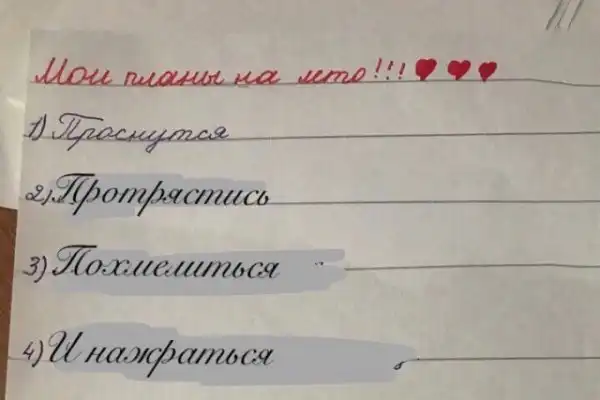 Мои планы на лето!!!
1) Проснутся
2) Протрястись
3) Похмелиться
4) И нажраться